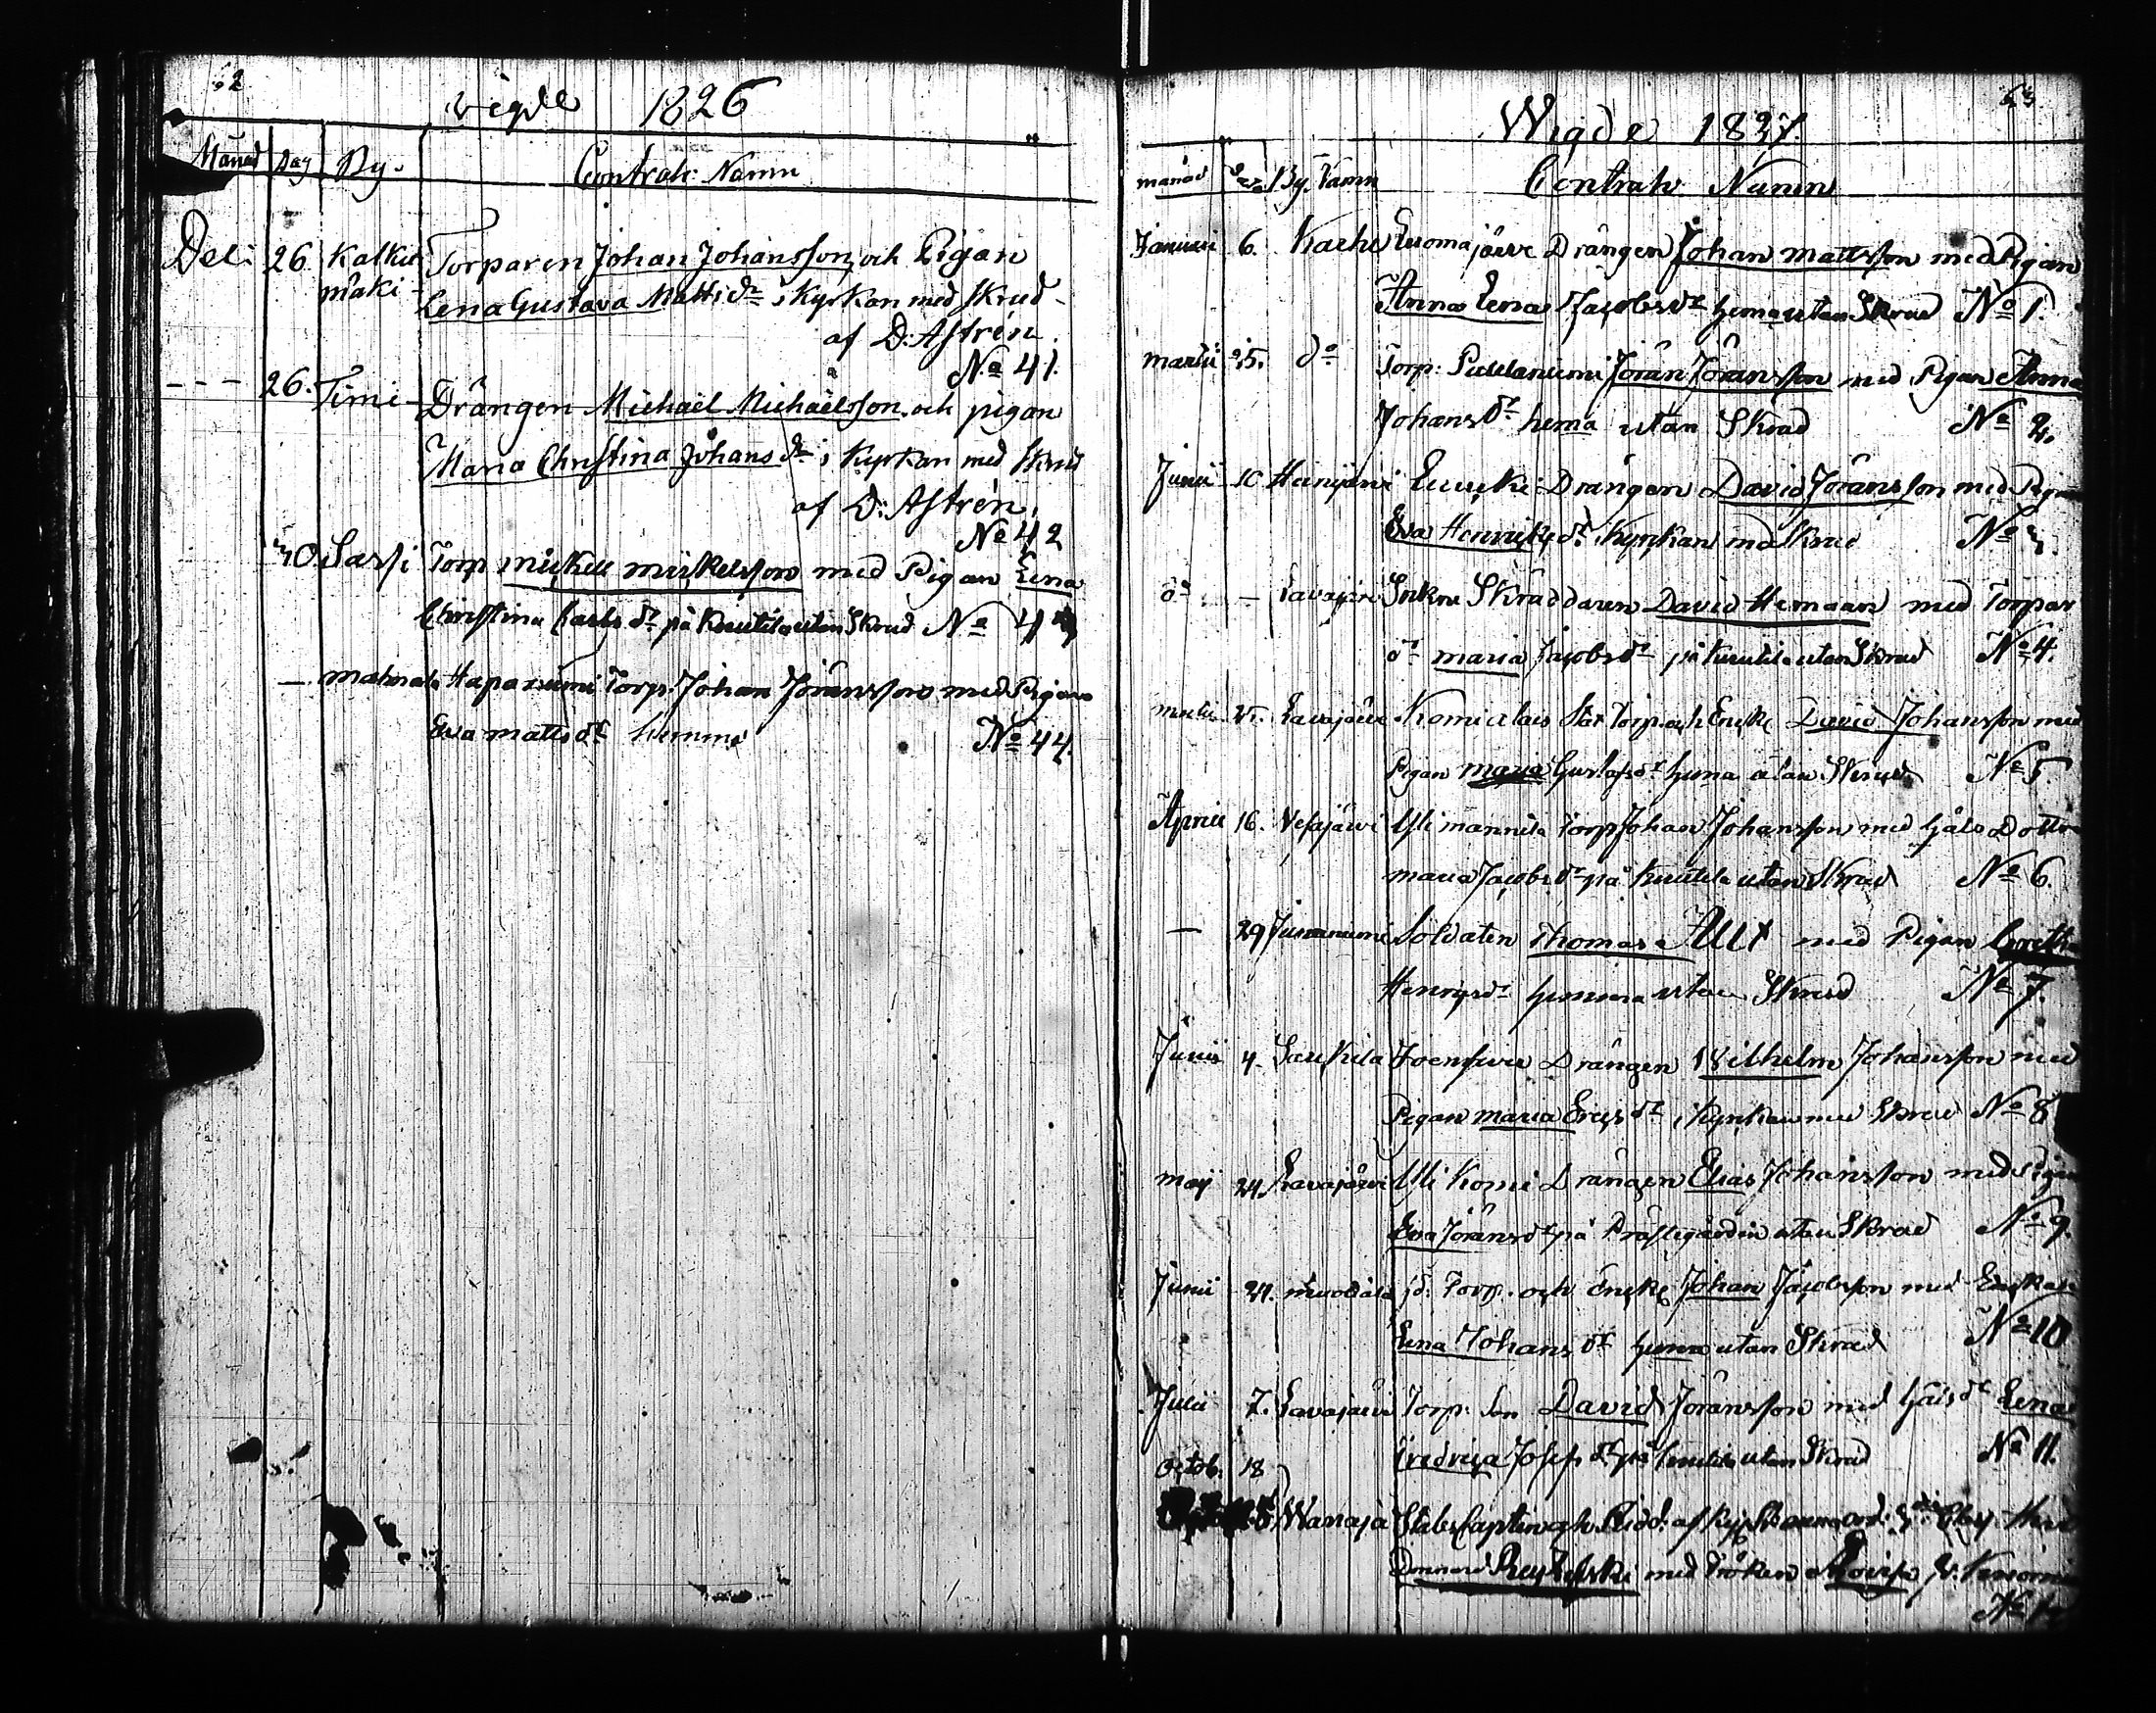 62
vigde 1826
Månad Dag By. Contrah: Namn
Dec: 26 Kalku Torparen Johan Johansson, och Pigan
mäki- Lena Gustava Matts dr i Kyrkan med skrud-
af D: Astrén.
No 41.
--- 26. Timi- Drängen Michaël Michaëlsson. och pigan
Maria Christina Johans dr i Kyrkan med skrud
af D: Astrén.
No 42
30 Sassi Torp mickel mickelsson med Pigan Lena
Christina Carls dr på Knutila utan Skrud No 43
— Haparumi Torp: Johan Jöransson med Pigan
Eva matts dr hemma No 44.
63
Wigde 1827.
månad Dag By. Namn Contrah Namn
Januari 6. Kaehe Luomajärvi Drängen Johan mattsson med Pigan
Anna Lena Jacobs dr hema utan Skrud No 1.
martii 25. do Torp: Jöran Jöransson med Pigan Anna
Johans dr hema utan Skrud No 2.
10 Drängen David Jöransson med Pigan
Eva Henrichs dr i Kyrkan med Skrud No 3.
do — Lavajärvi Sockne Skräddaren David Hemaan med Torpar
dr maria Jacobs dr på Knutila utan Skrud No 4.
Lavajärvi Komi Torp. och Enckl. David Johansson med
Pigan maria Gustafs dr hema utan Skrud No 5.
Aprill 16. Vesajärvi Ylimannila Torp Johan Johansson med Gåls Dottr
maria Jacobs dr på Knutila utan Skrud No 6.
— 29 Jumesniemi Soldaten Thomas Allt med Pigan Gretha
Henrics dr hemma utan Skrud No 7.
Junii 4. Sauckila Drängen Wilhelm Johansson med
Pigan maria Erics dr i Kyrkan med Skrud No 8
maij 24. Lavajärvi Yli Komi Drängen Elias Johansson med Pigan
Eva Jörans dr på Prästegården utan Skrud No 9.
Junii 24. Torp. och Encke Johan Jacobsson med Enckan
Lena Johans dr hema utan Skrud No 10
Julii 7. Lavajärvi Torp: Son David Jöransson med Gåls dr Lena
Fredrica Josep dr på Knutila utan Skrud No 11.
Octob. 18
Wanaja Stabs Capten och Ridd. af Rys:
med Fröken Lovisa
No 12